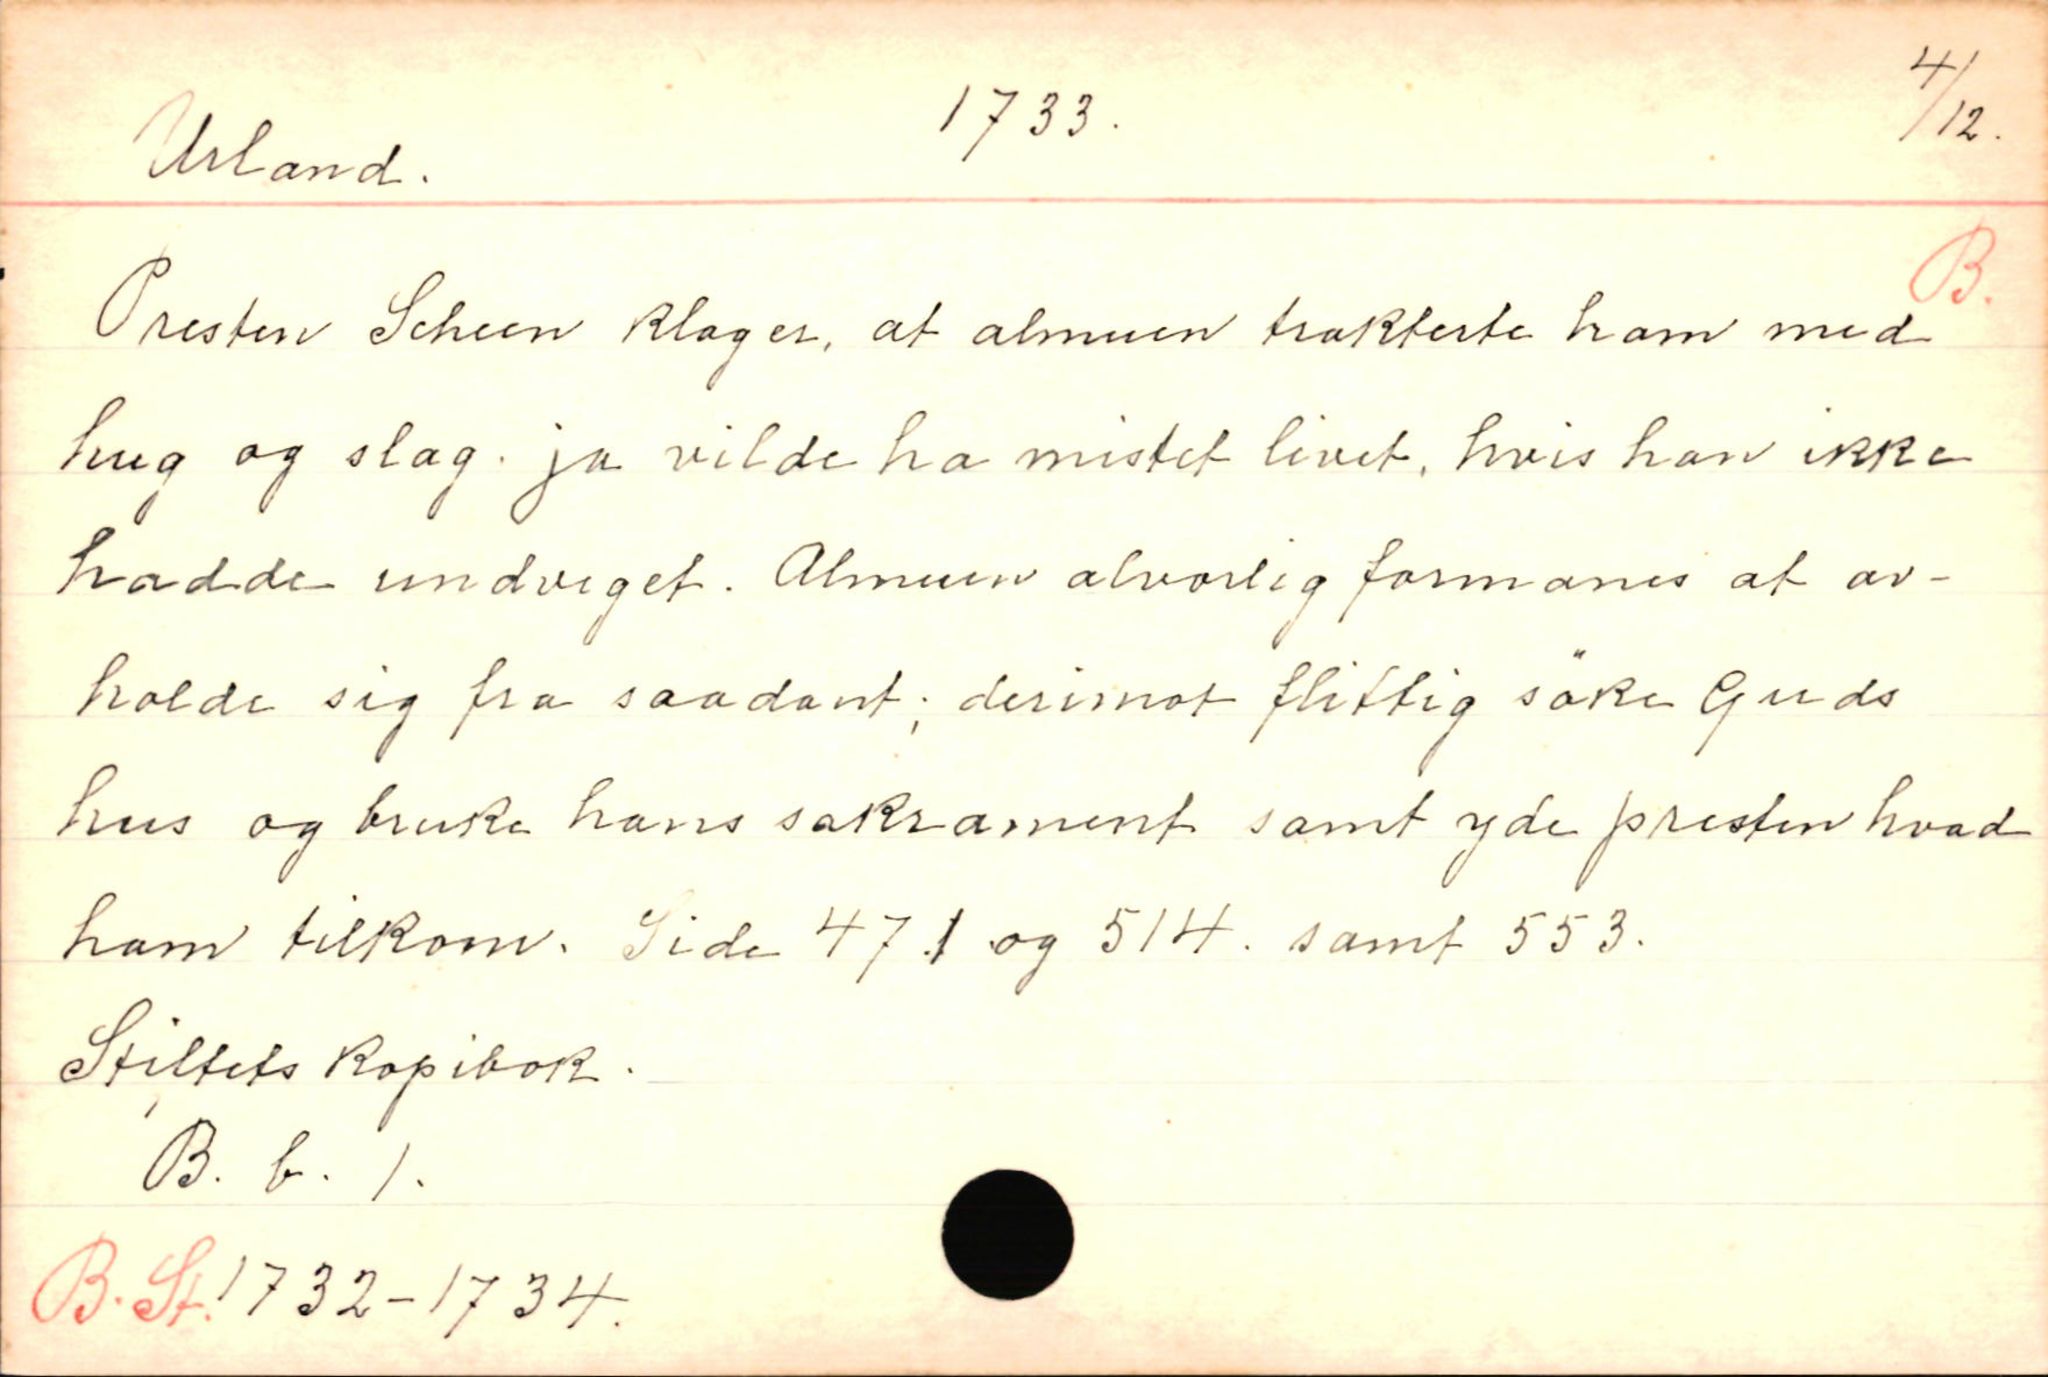 Urland. 1733. 4/12.
B.
Presten Scheen klager, at almuen trakterte ham med
hug og slag. ja vilde ha mistet livet, hvis han ikke
hadde undveget. Almuen alvorlig formanes at av-
holde sig fra saadant; derimot flittig söke Guds
hus og bruke hans sakrament samt yde presten hvad
ham tilkom. Side 471 og 514. samt 553.
Stiftets kopibok.
B. b. 1.
B. St. 1732-1734.